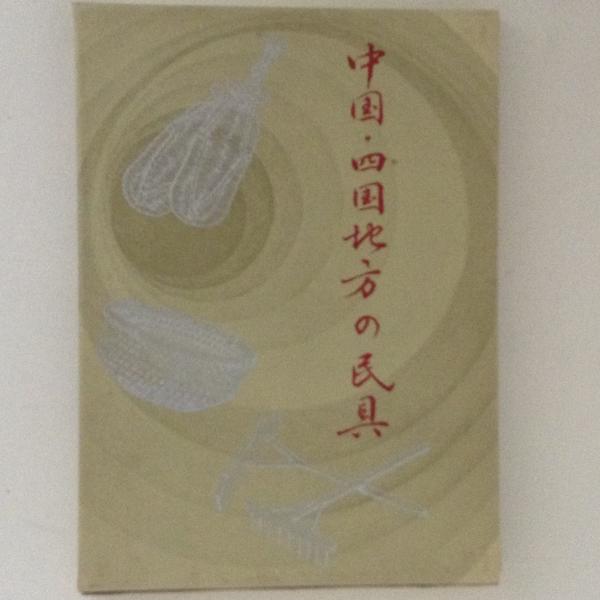 中国・四国地方の民具